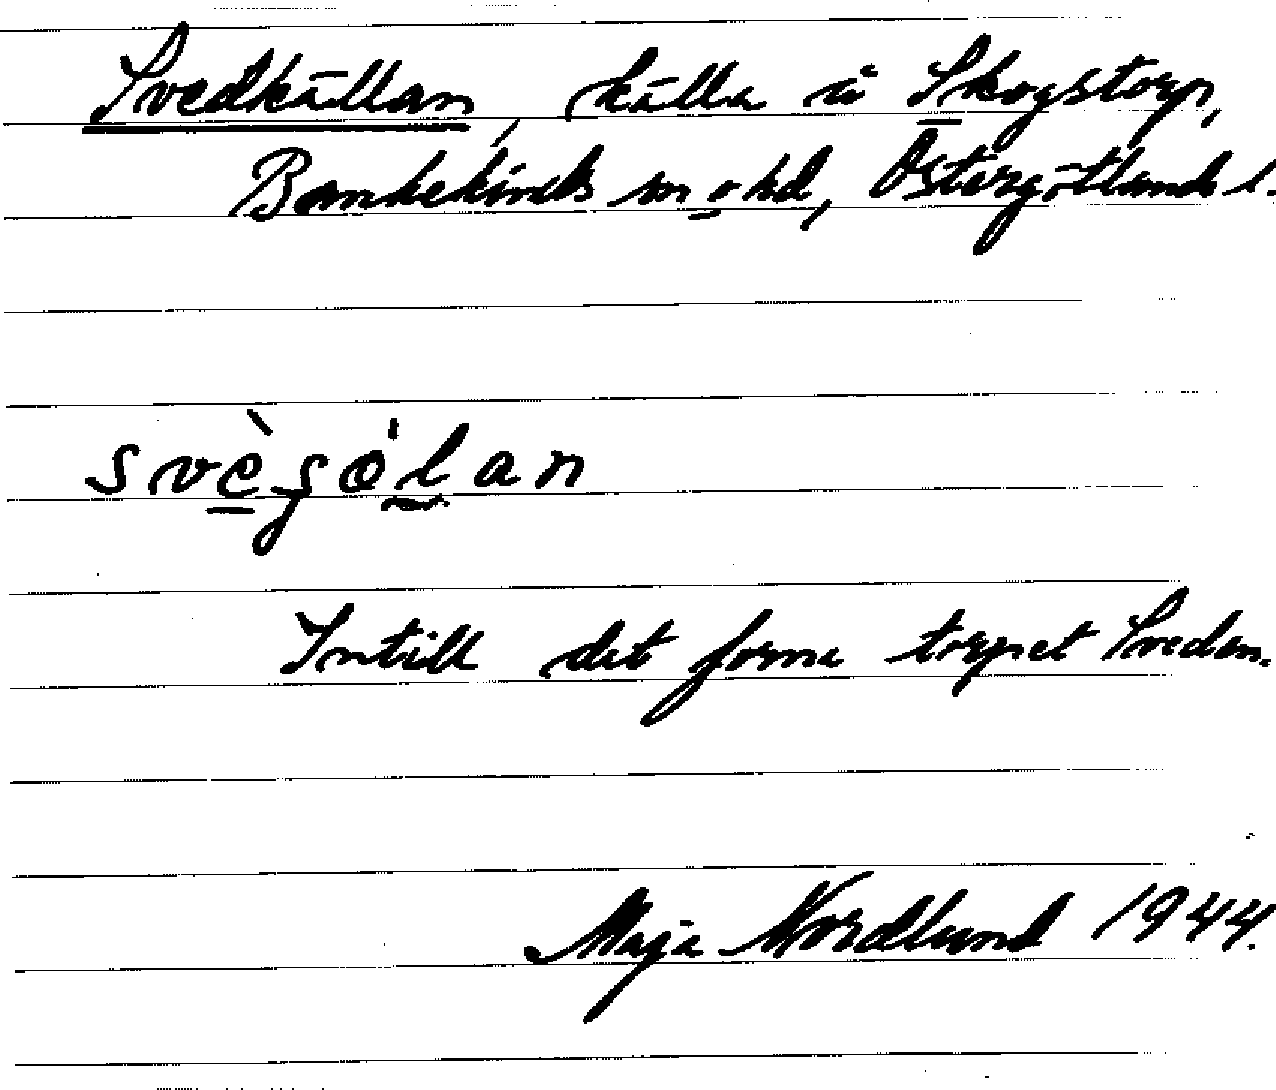 Svedkällan, källa å Skogstorp,
Bankekinds sn o hd, Östergötlands l.
svèșó̀lan
Intill det forna torpet Sveden.
Maja Nordlund 1944.